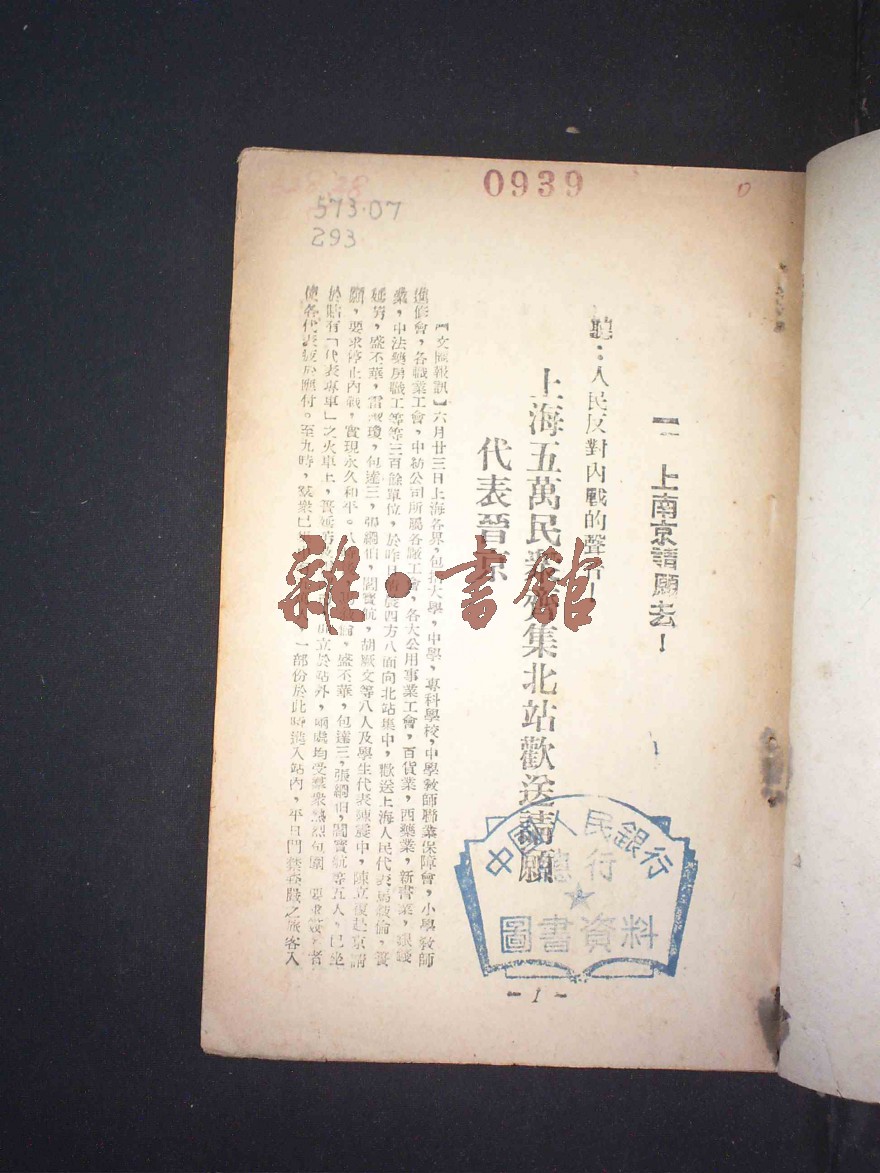 0939
573.07
293
【一 上南京請願去！
聽：人民反對內戰的聲音！
上海五萬民衆齊集北站歡送請願
代表晉京
【文匯報訊】六月廿三日上海各界，包括大學，中學，專科學校，中學教師聯業保障會，小學教師
進修會，各職業工會，中紡公司所屬各廠工會，各大公用事業工會，百貨業，西藥業，新書業，銀錢
業，中法藥房職工等等三百餘單位，於昨日 四方八面向北站集中，歡送上海人民代表馬敍倫，簣
延芳，盛丕華，雷潔瓊，包達三，張絅伯，閻寶航，胡厥文等八人及學生代表陳震中，陳立復赴京請
願，要求停止內戰，實現永久和平。八 倫，盛丕華，包達三，張絅伯，閻寶航等五人，已坐
於貼有「代表專車」之火車上，簣延芳 立於站外，兩處均受羣衆熱烈包圍 要求簽 者
使各代表疲於應付。至九時，羣衆已 一部份於此時進入站內，平日門禁森嚴之旅客入
雜·書館
中國人民銀行
總行
圖書資料
- 1 -